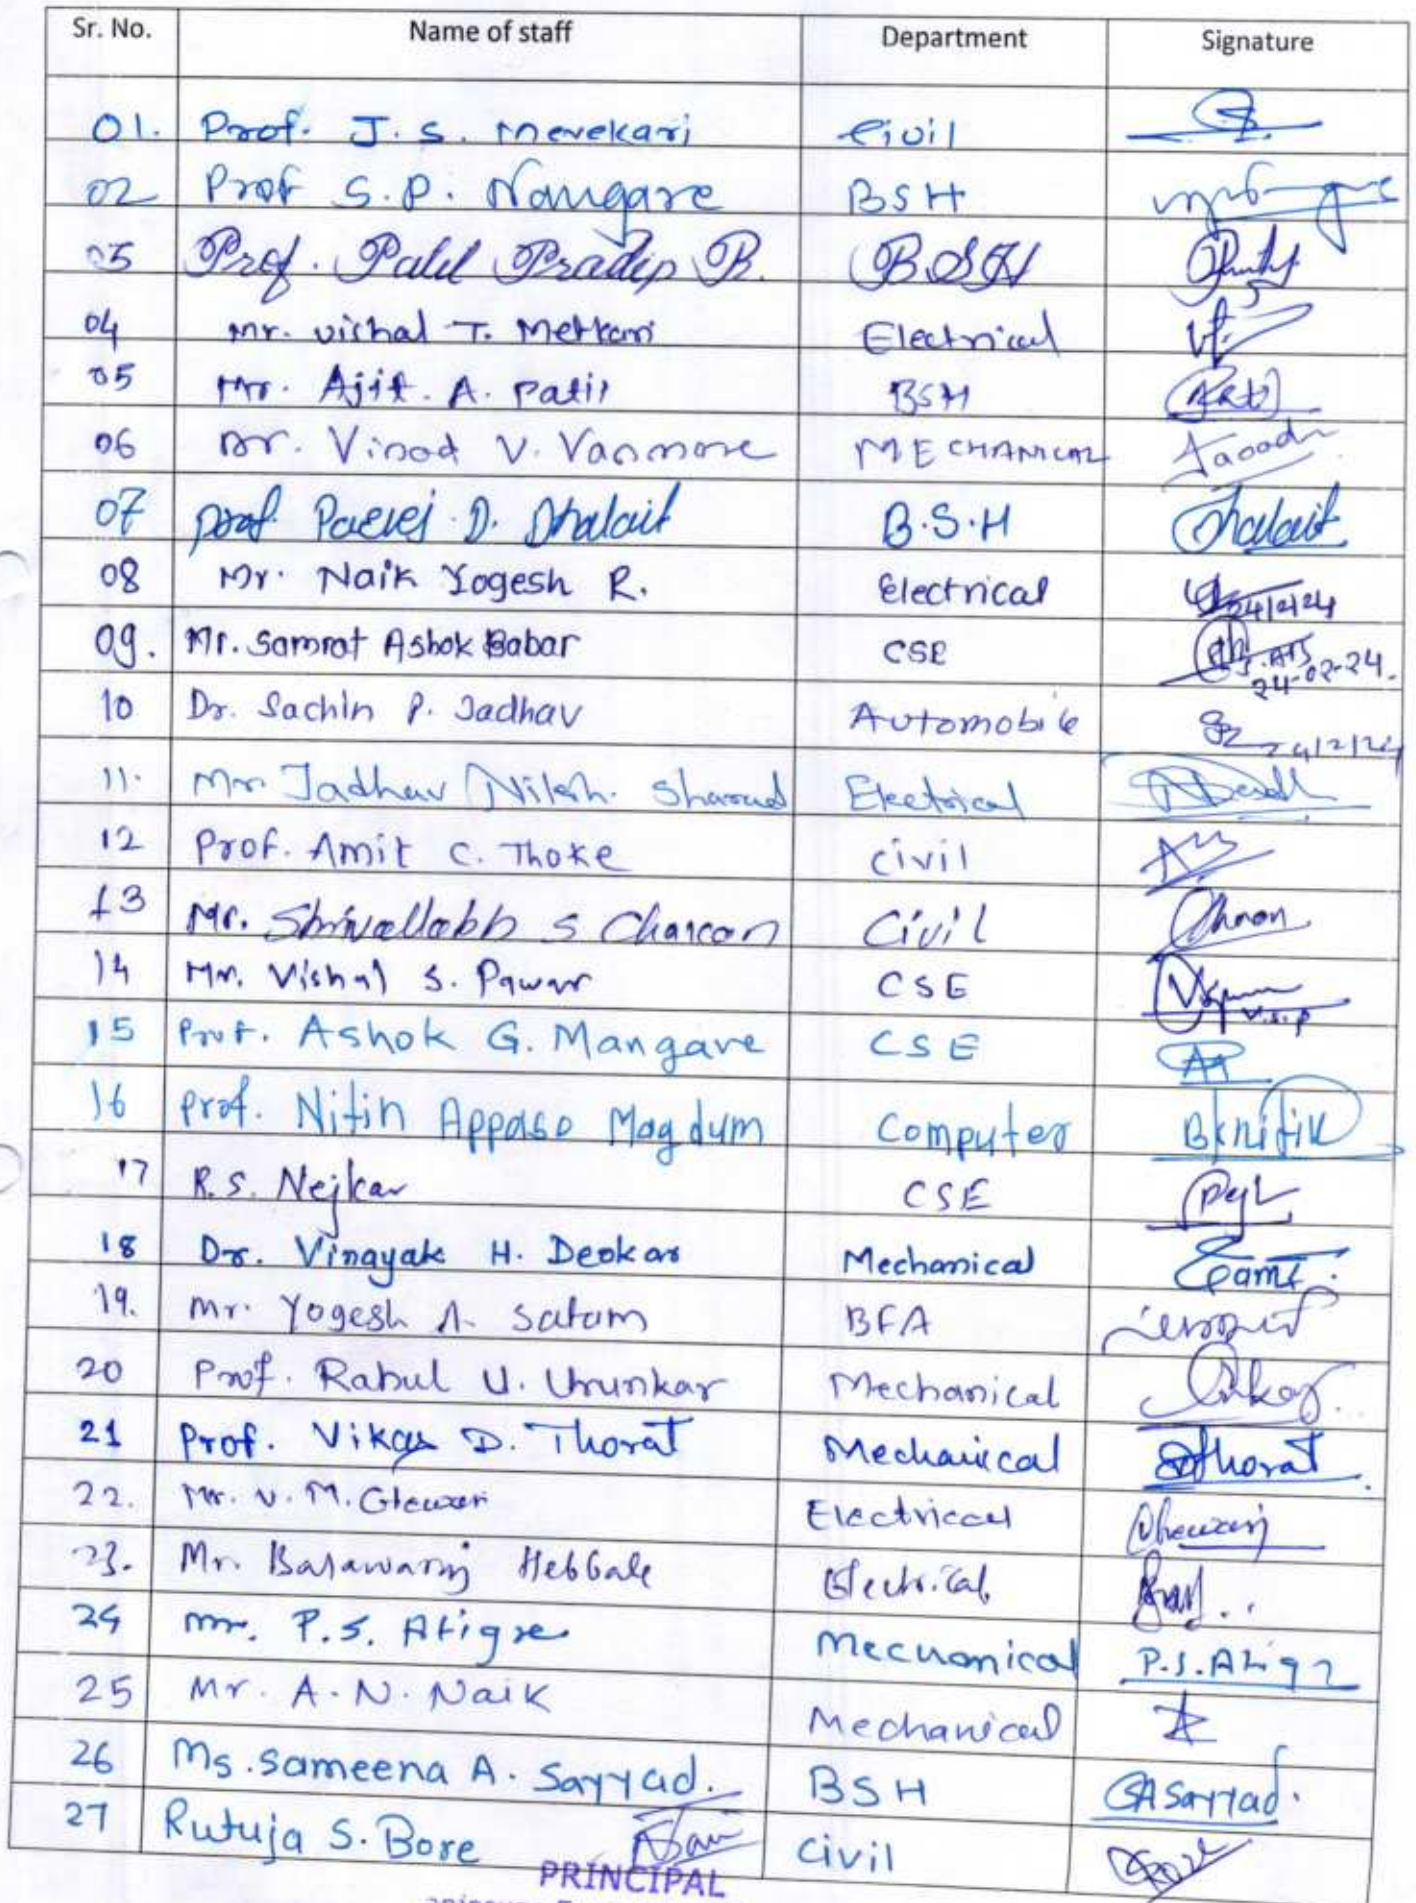 Sr. No. Name of staff Department Signature
01. Prof. J. S. Mevekari Civil
02 Prof S. P. Nangare BSH
03 Prof. Patil Pradip B. BSH
04 Mr. vishal T. Metkari Electrical
05 Mr. Ajit. A. Patil BSH
06 Dr. Vinod V. Vanmore MECHANICAL
07 Prof D. Dhalait B.S.H Dhalait
08 Mr. Naik Yogesh R. Electrical 24/2/24
09. Mr. Samrat Ashok Babar CSE 24-02-24.
10 Dr. Sachin P. Jadhav Automobile 24/2/24
11. Mr. Jadhav Nilesh. Sharad Electrical
12 Prof. Amit C. Thoke civil
13 Mr. Shrivallabh S Chavan Civil
14 Mr. Vishal S. Pawar CSE V.S.P
15 Prof. Ashok G. Mangave CSE
16 Prof. Nitin Appaso Magdum Computer
17 R.S. Nejkar CSE
18 Dr. Vinayak H. Deokar Mechanical
19. Mr. Yogesh A. Satam BFA
20 Prof. Rahul U. Urunkar Mechanical
21 Prof. Vikas D. Thorat Mechanical Thorat
22. Mr. V. M. Electrical
23. Mr. Basawaraj Hebbale Electrical
24 Mr. P.S. Atigre Mechanical P.S.Atigre
25 Mr. A. N. Naik Mechanical
26 Ms. Sameena A. Sayyad. BSH SASayyad.
27 Rutuja S. Bore Civil
PRINCIPAL